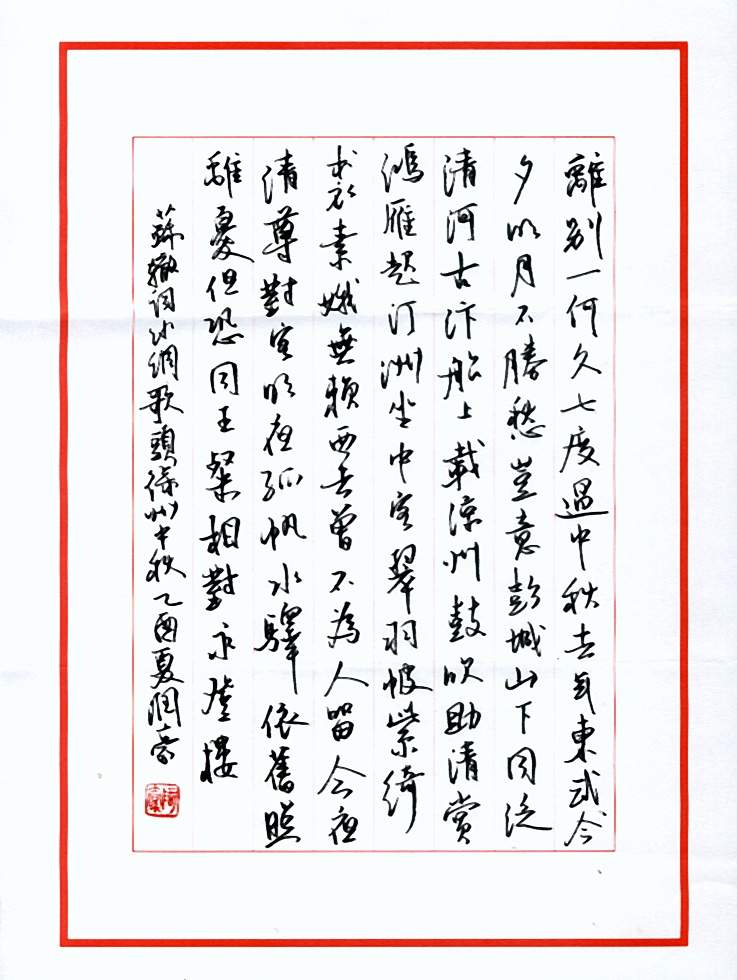 離別一何久七度過中秋去年東武今
夕明月不勝愁豈意彭城山下同泛
清河古汴船上載涼州鼓吹助清賞
鴻雁起汀洲坐中客翠羽帔紫綺
裘素娥無賴西去曾不為人留今夜
清尊對客明夜孤帆水驛依舊照
離憂但恐同王粲相對永登樓
蘇轍詞水調歌頭徐州中秋乙酉夏潤